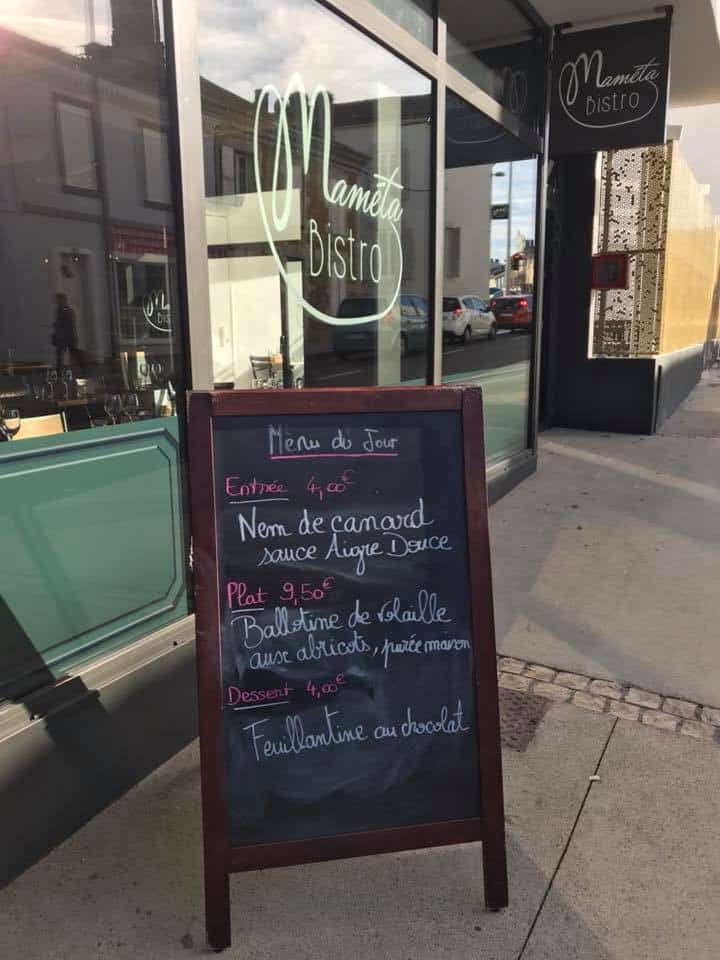 Mamēta
Bistro
Mamēta
Bistro
Menu du Jour
Entrée 4,00€
Nem de canard
sauce Aigre Douce
Plat 9,50€
Ballotine de volaille
aux abricots, purée maison
Dessert 4,00€
Feuillantine au chocolat